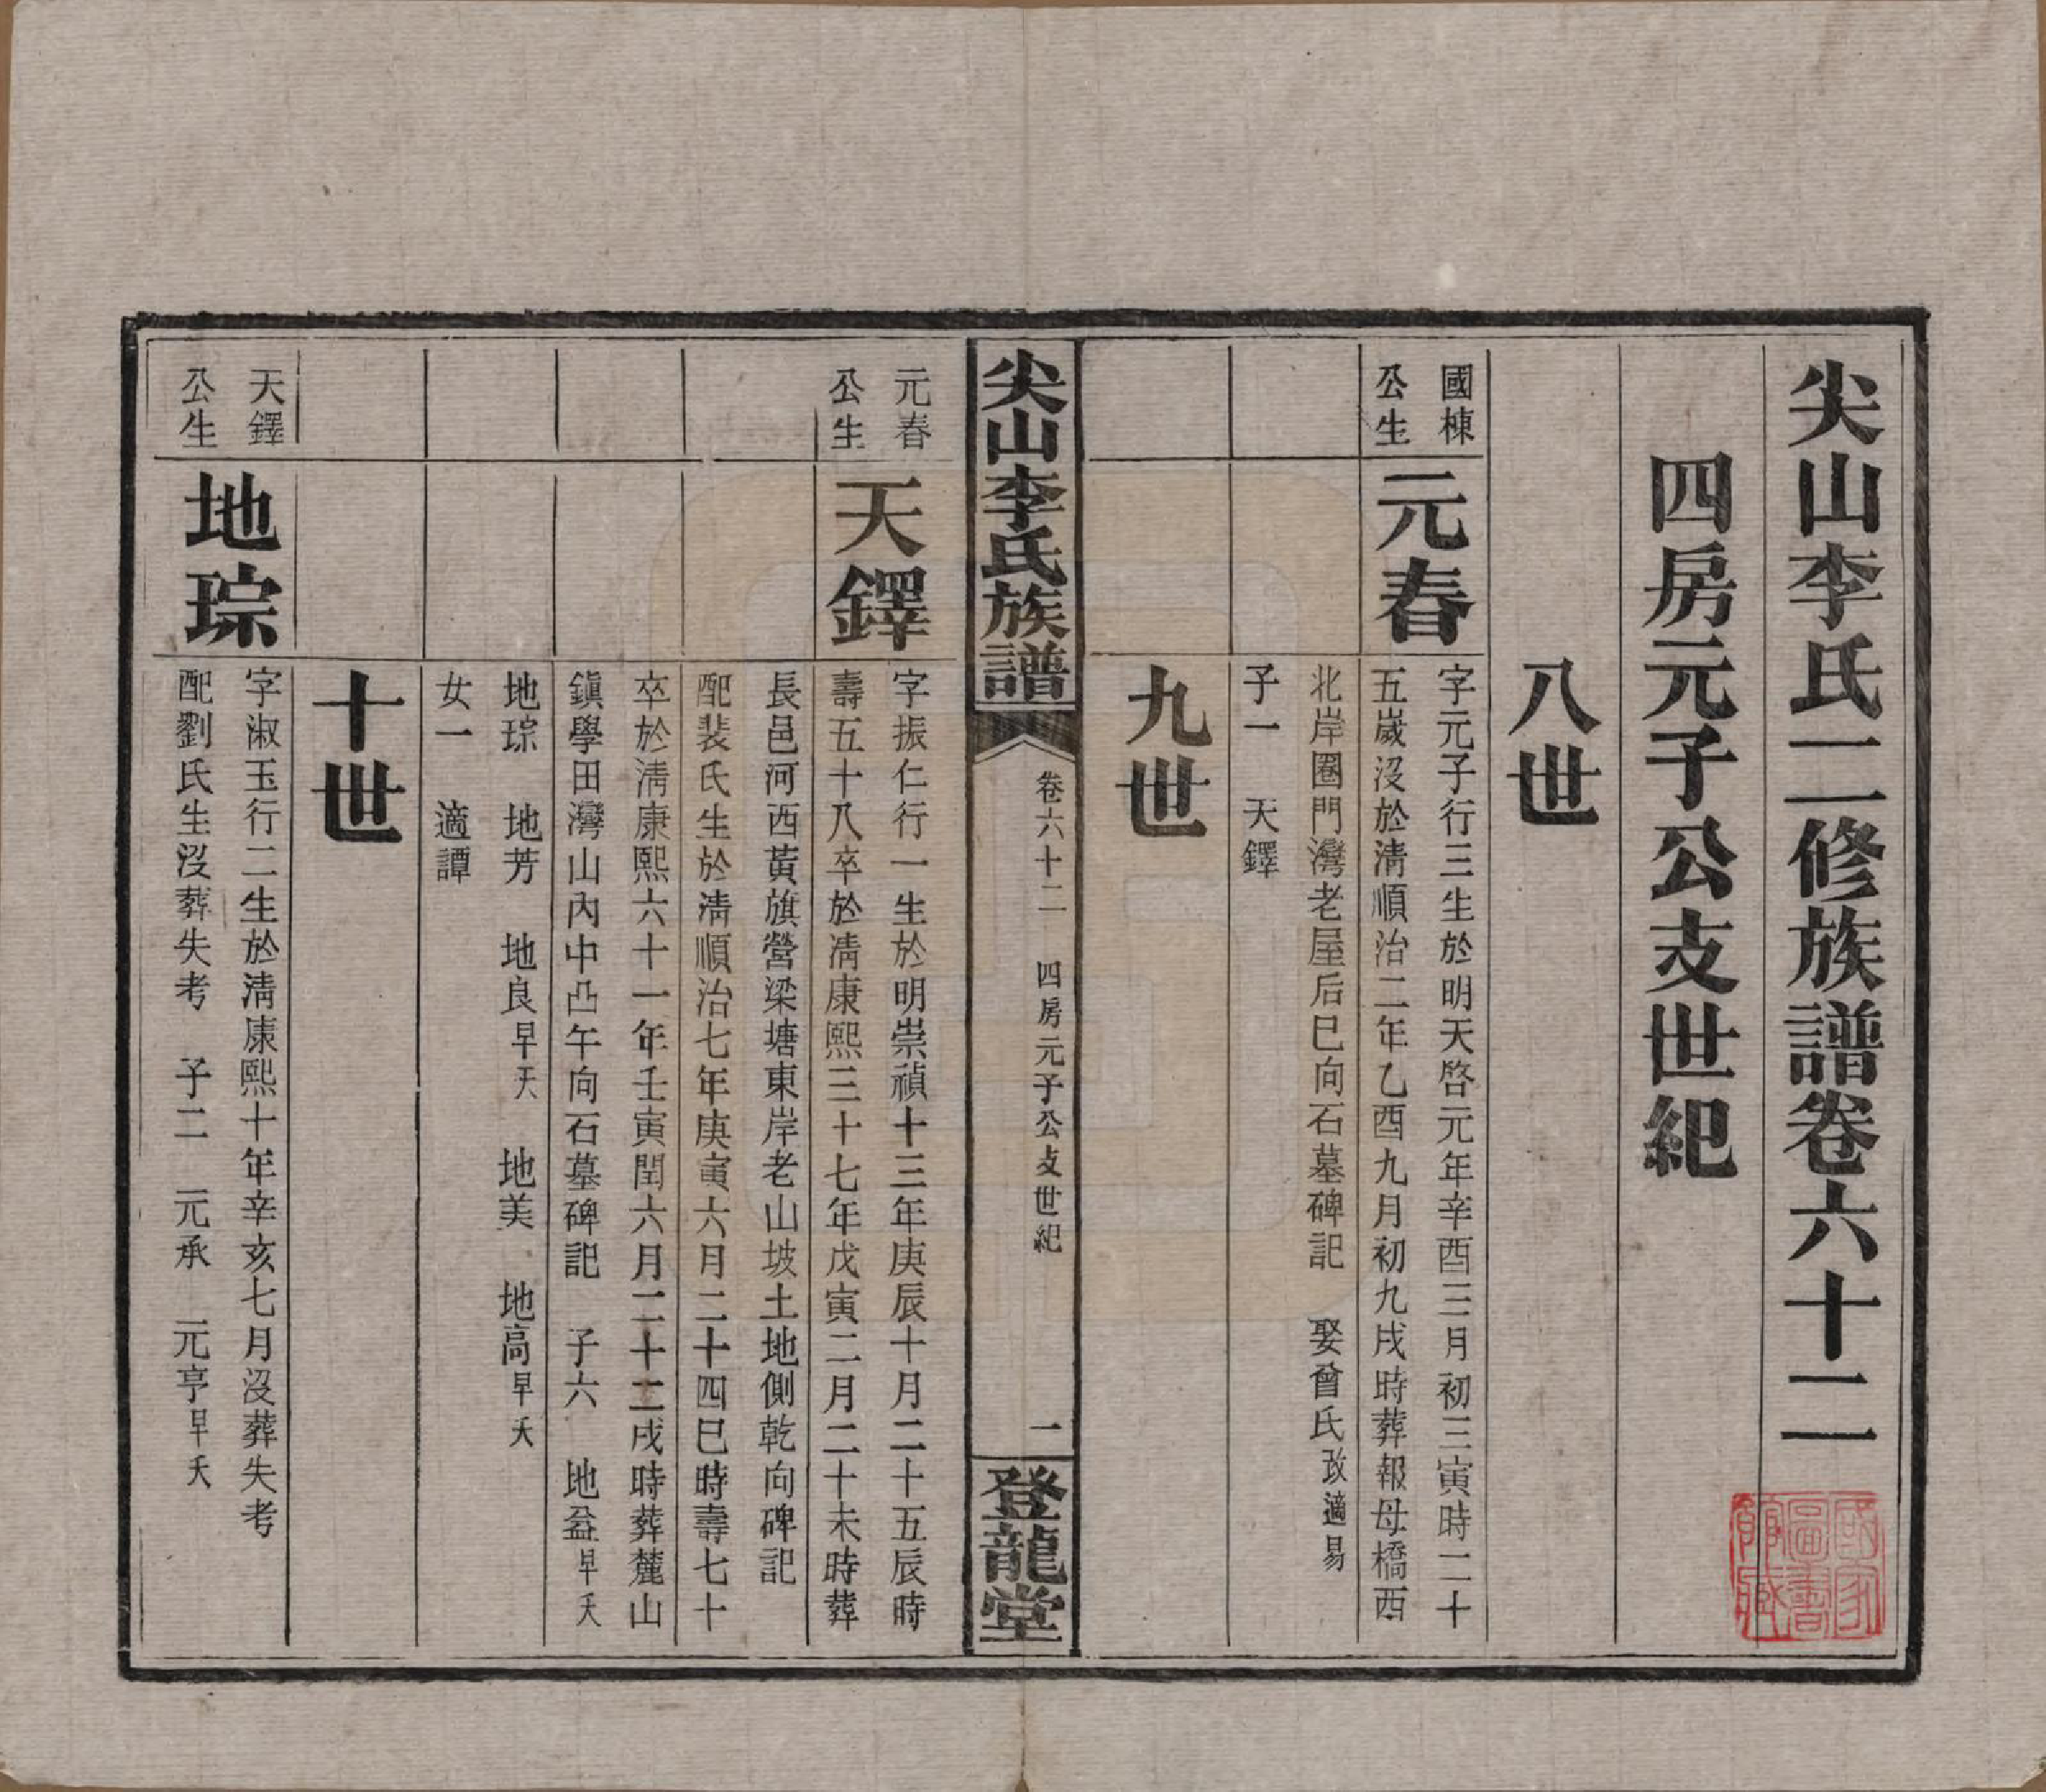 尖山李氏二修族譜卷六十二
四房元子公支世紀
八世
國棟
公生
元春
字元子行三生於明天啓元年辛酉三月初三寅時二十
五歲沒於清順治二年乙酉九月初九戌時葬報母橋西
北岸圈門灣老屋后巳向石墓碑記 娶曾氏改適易
子一 天鐸
九世
尖山李氏族譜
卷六十二 四房元子公支世紀
一
登龍堂
元春
公生
天鐸
字振仁行一生於明崇禎十三年庚辰十月二十五辰時
壽五十八卒於清康熙三十七年戊寅二月二十未時葬
長邑河西黃旗營梁塘東岸老山坡土地側乾向碑記
配裴氏生於清順治七年庚寅六月二十四巳時壽七十
卒於清康熙六十一年壬寅閏六月二十二戌時葬麓山
鎭學田灣山內中凸午向石墓碑記 子六 地益早夭
地琮 地芳 地良早夭 地美 地高早夭
女一 適譚
十世
天鐸
公生
地琮
字淑玉行二生於清康熙十年辛亥七月沒葬失考
配劉氏生沒葬失考 子二 元承 元亨早夭
國家
圖書
館藏